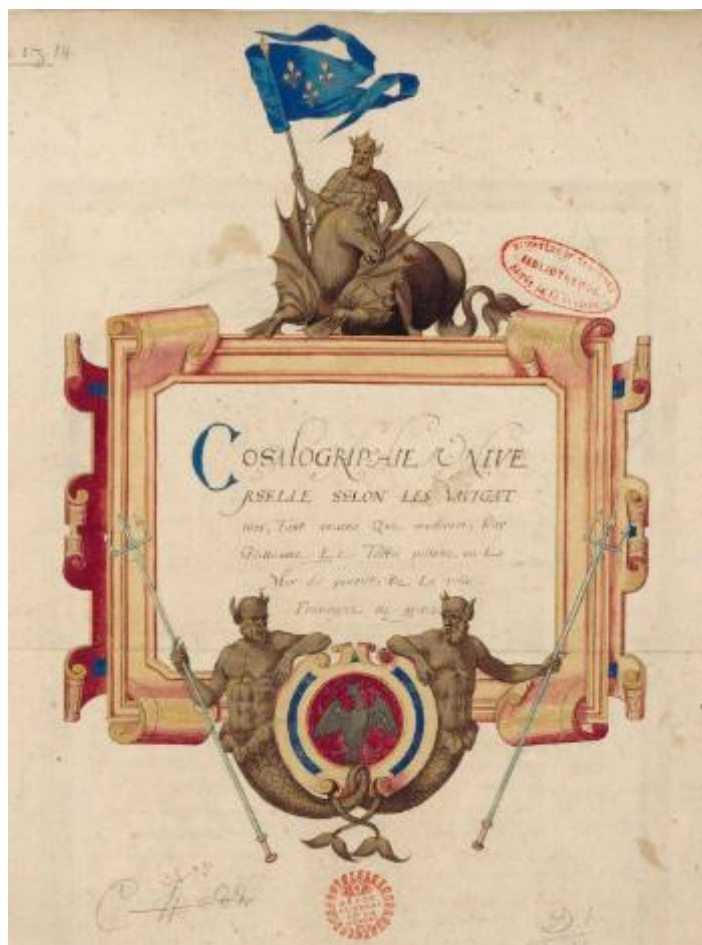 COSMOGRAPHIE UNIVE
RSELLE SELON LES NAVIGAT
eurs, Tant anciens Que modernes, Par
Guillaume Le Testu pillote en La
Mer du ponent: De La ville
Francoyse de grace
BIBLIOTHEQUE